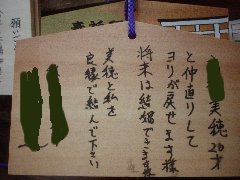 美穂 20才
と仲直りして
ヨリが戻せます様
将来は結婚できます様
美穂と私を
良縁で結んで下さい
願い